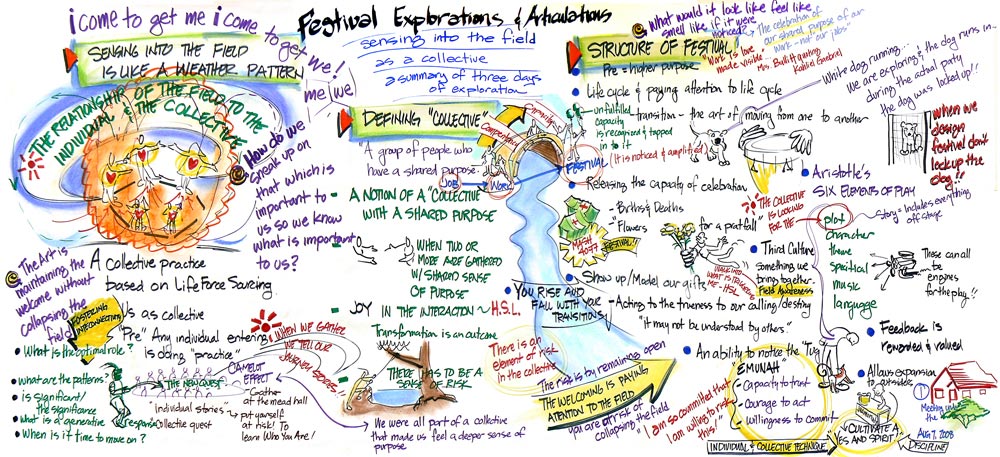 i come to get me i come to get me!
me i we
Festival Explorations & Articulations
sensing into the field
as a collective
a summary of three days
of exploration
SENSING INTO THE FIELD
IS LIKE A WEATHER PATTERN
THE RELATIONSHIP OF THE FIELD TO THE
INDIVIDUAL & THE COLLECTIVE
How do we
sneak up on
that which is
important to
us so we know
what is important
to us?
The Art is
maintaining the
welcome without
collapsing the
field
A collective practice
based on Life Force Sourcing
FOSTERING
INTERCONNECTION
Us as collective
"Pre" Any individual entering
is doing "practice"
What is the optimal role?
what are the patterns?
is significant/
the significance
what is a generative
response
When is it time to move on?
THE NEW QUEST
"Individual stories"
Collective quest
CAMELOT
EFFECT
Gather
at the mead hall
put yourself
at risk! To
learn Who You Are!
WHEN WE GATHER
WE TELL OUR
JOURNEY STORIES
DEFINING "COLLECTIVE"
A group of people who
have a shared purpose.
A NOTION OF A "COLLECTIVE"
WITH A SHARED PURPOSE
WHEN TWO OR
MORE ARE GATHERED
W/ SHARED SENSE
OF PURPOSE
JOY IN THE INTERACTION ~ H.S.L.
Transformation is an outcome
THERE HAS TO BE A
SENSE OF RISK
We were all part of a collective
that made us feel a deeper sense of
purpose
There is an
element of risk
in the collective
JOB
WORK
FESTIVAL
YOU RISE AND
FALL WITH YOUR
TRANSITIONS
The risk is by remaining open
THE WELCOMING IS PAYING
ATTENTION TO THE FIELD
you are at risk of
collapsing the field
"I am so committed that
I am willing to risk
this!"
What would it look like feel like
smell like if it were
noticed?
The celebration of
our shared purpose of our
work - not our jobs
STRUCTURE OF FESTIVAL
"Work is love
made visible"
Kahlil Gabriel
Pre = higher purpose
Life cycle & paying attention to life cycle
unfulfilled
capacity
is recognized & tapped
in to it
transition - the art of moving from one to another
(It is noticed & amplified)
Releasing the capacity of celebration
Births & Deaths
"Flowers for a pratfall"
MASH
4077
FESTIVAL!
Show up/Model our gifts
Acting to the trueness to our calling/destiny
"It may not be understood by others."
An ability to notice the "Tug"
EMUNAH
Capacity to trust
Courage to act
Willingness to commit
INDIVIDUAL & COLLECTIVE TECHNIQUE
CULTIVATE A
YES AND SPIRIT!
DISCIPLINE
White dog running... and the dog runs in...
We are exploring &
during the actual party
the dog was locked up!!
when we
design
festival don't
lock up the
dog!!
Aristotle's
SIX ELEMENTS OF PLAY
THE COLLECTIVE
IS LOOKING
FOR THE
plot
character
theme
spectical
music
language
Story = Includes everything
off stage
These can all
be
engines
for the play!!
Third Culture
Something we
bring together
Field Awareness
Feedback is
rewarded & valued
Allows expansion
to outsiders
Meeting under
the
Aug 7, 2008